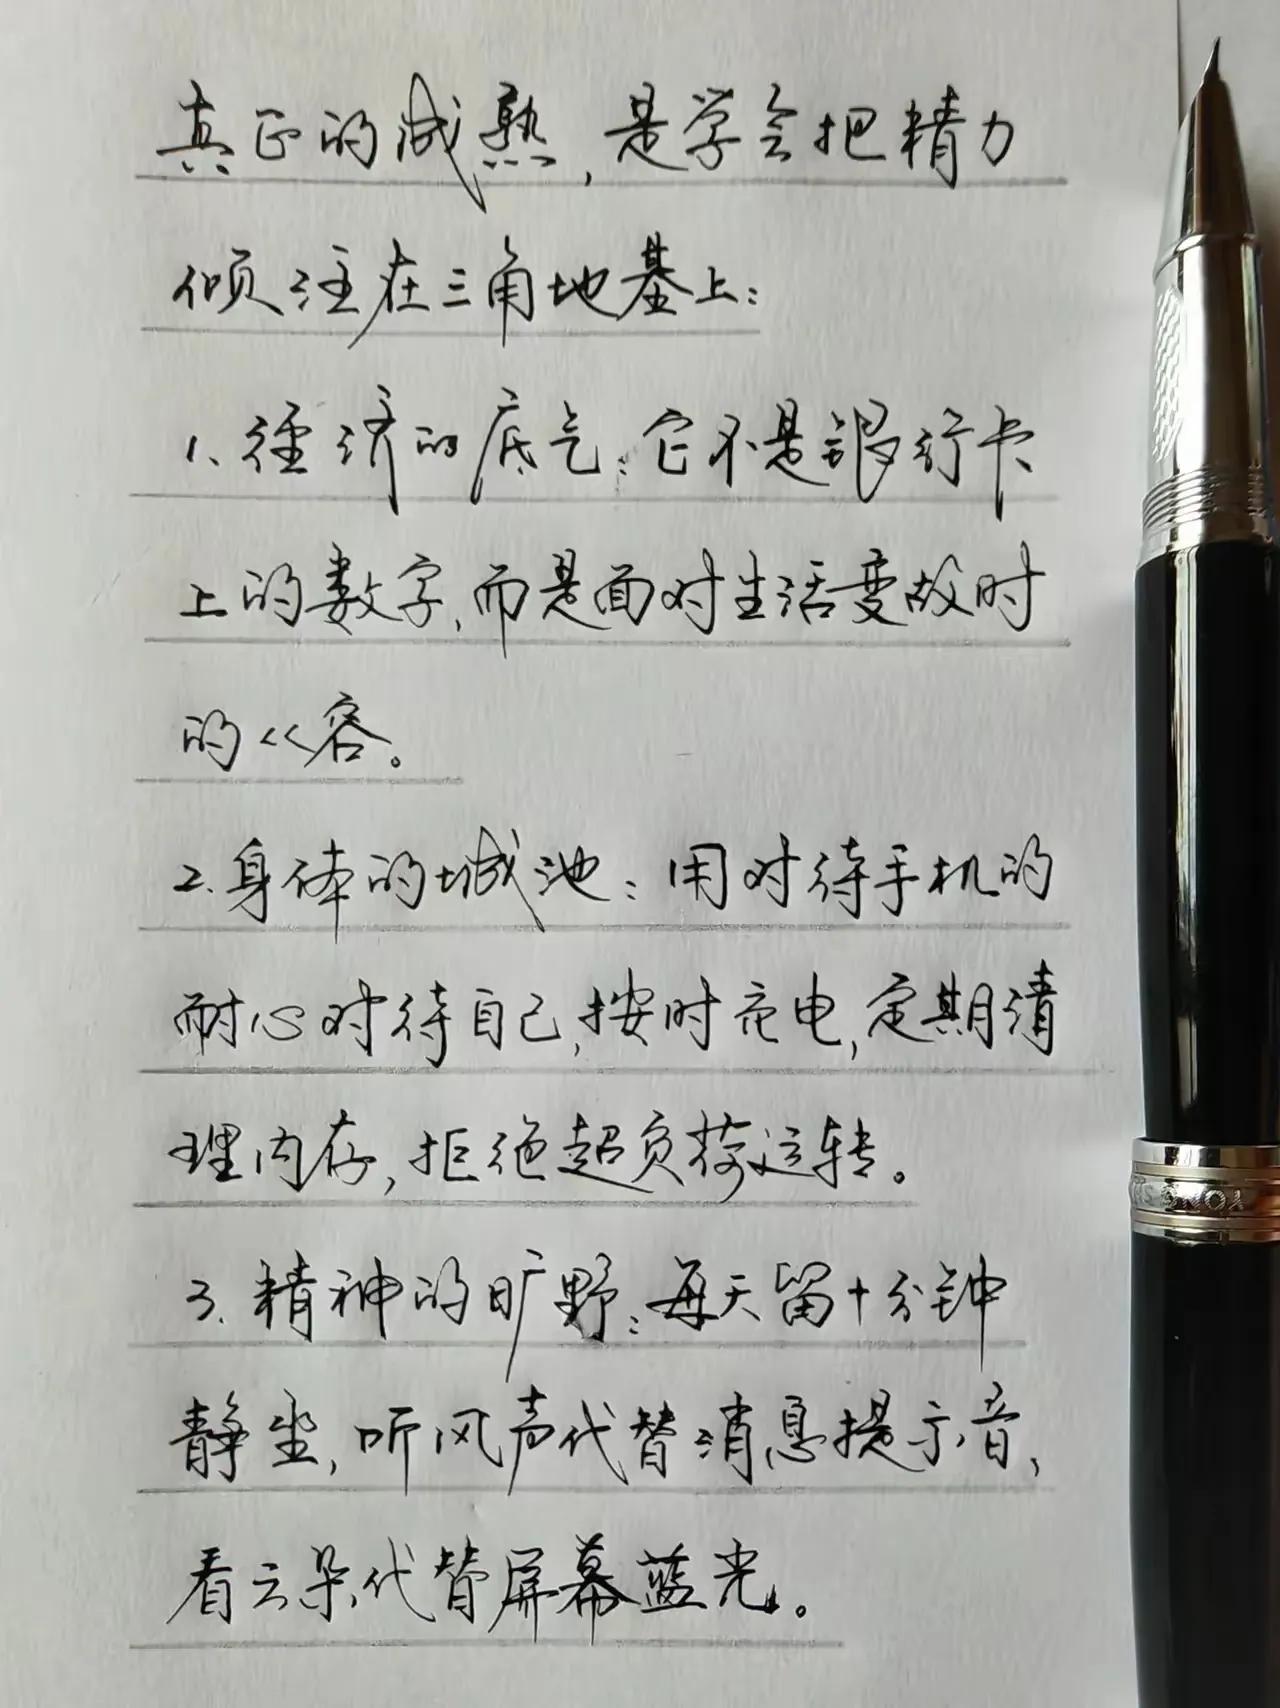 真正的成熟,是学会把精力
倾注在三角地基上:
1、经济的底气:它不是银行卡
上的数字,而是面对生活变故时
的从容。
2.身体的城池:用对待手机的
耐心对待自己,按时充电,定期清
理内存,拒绝超负荷运转。
3.精神的旷野:每天留十分钟
静坐,听风声代替消息提示音,
看云朵代替屏幕蓝光。
YONG S